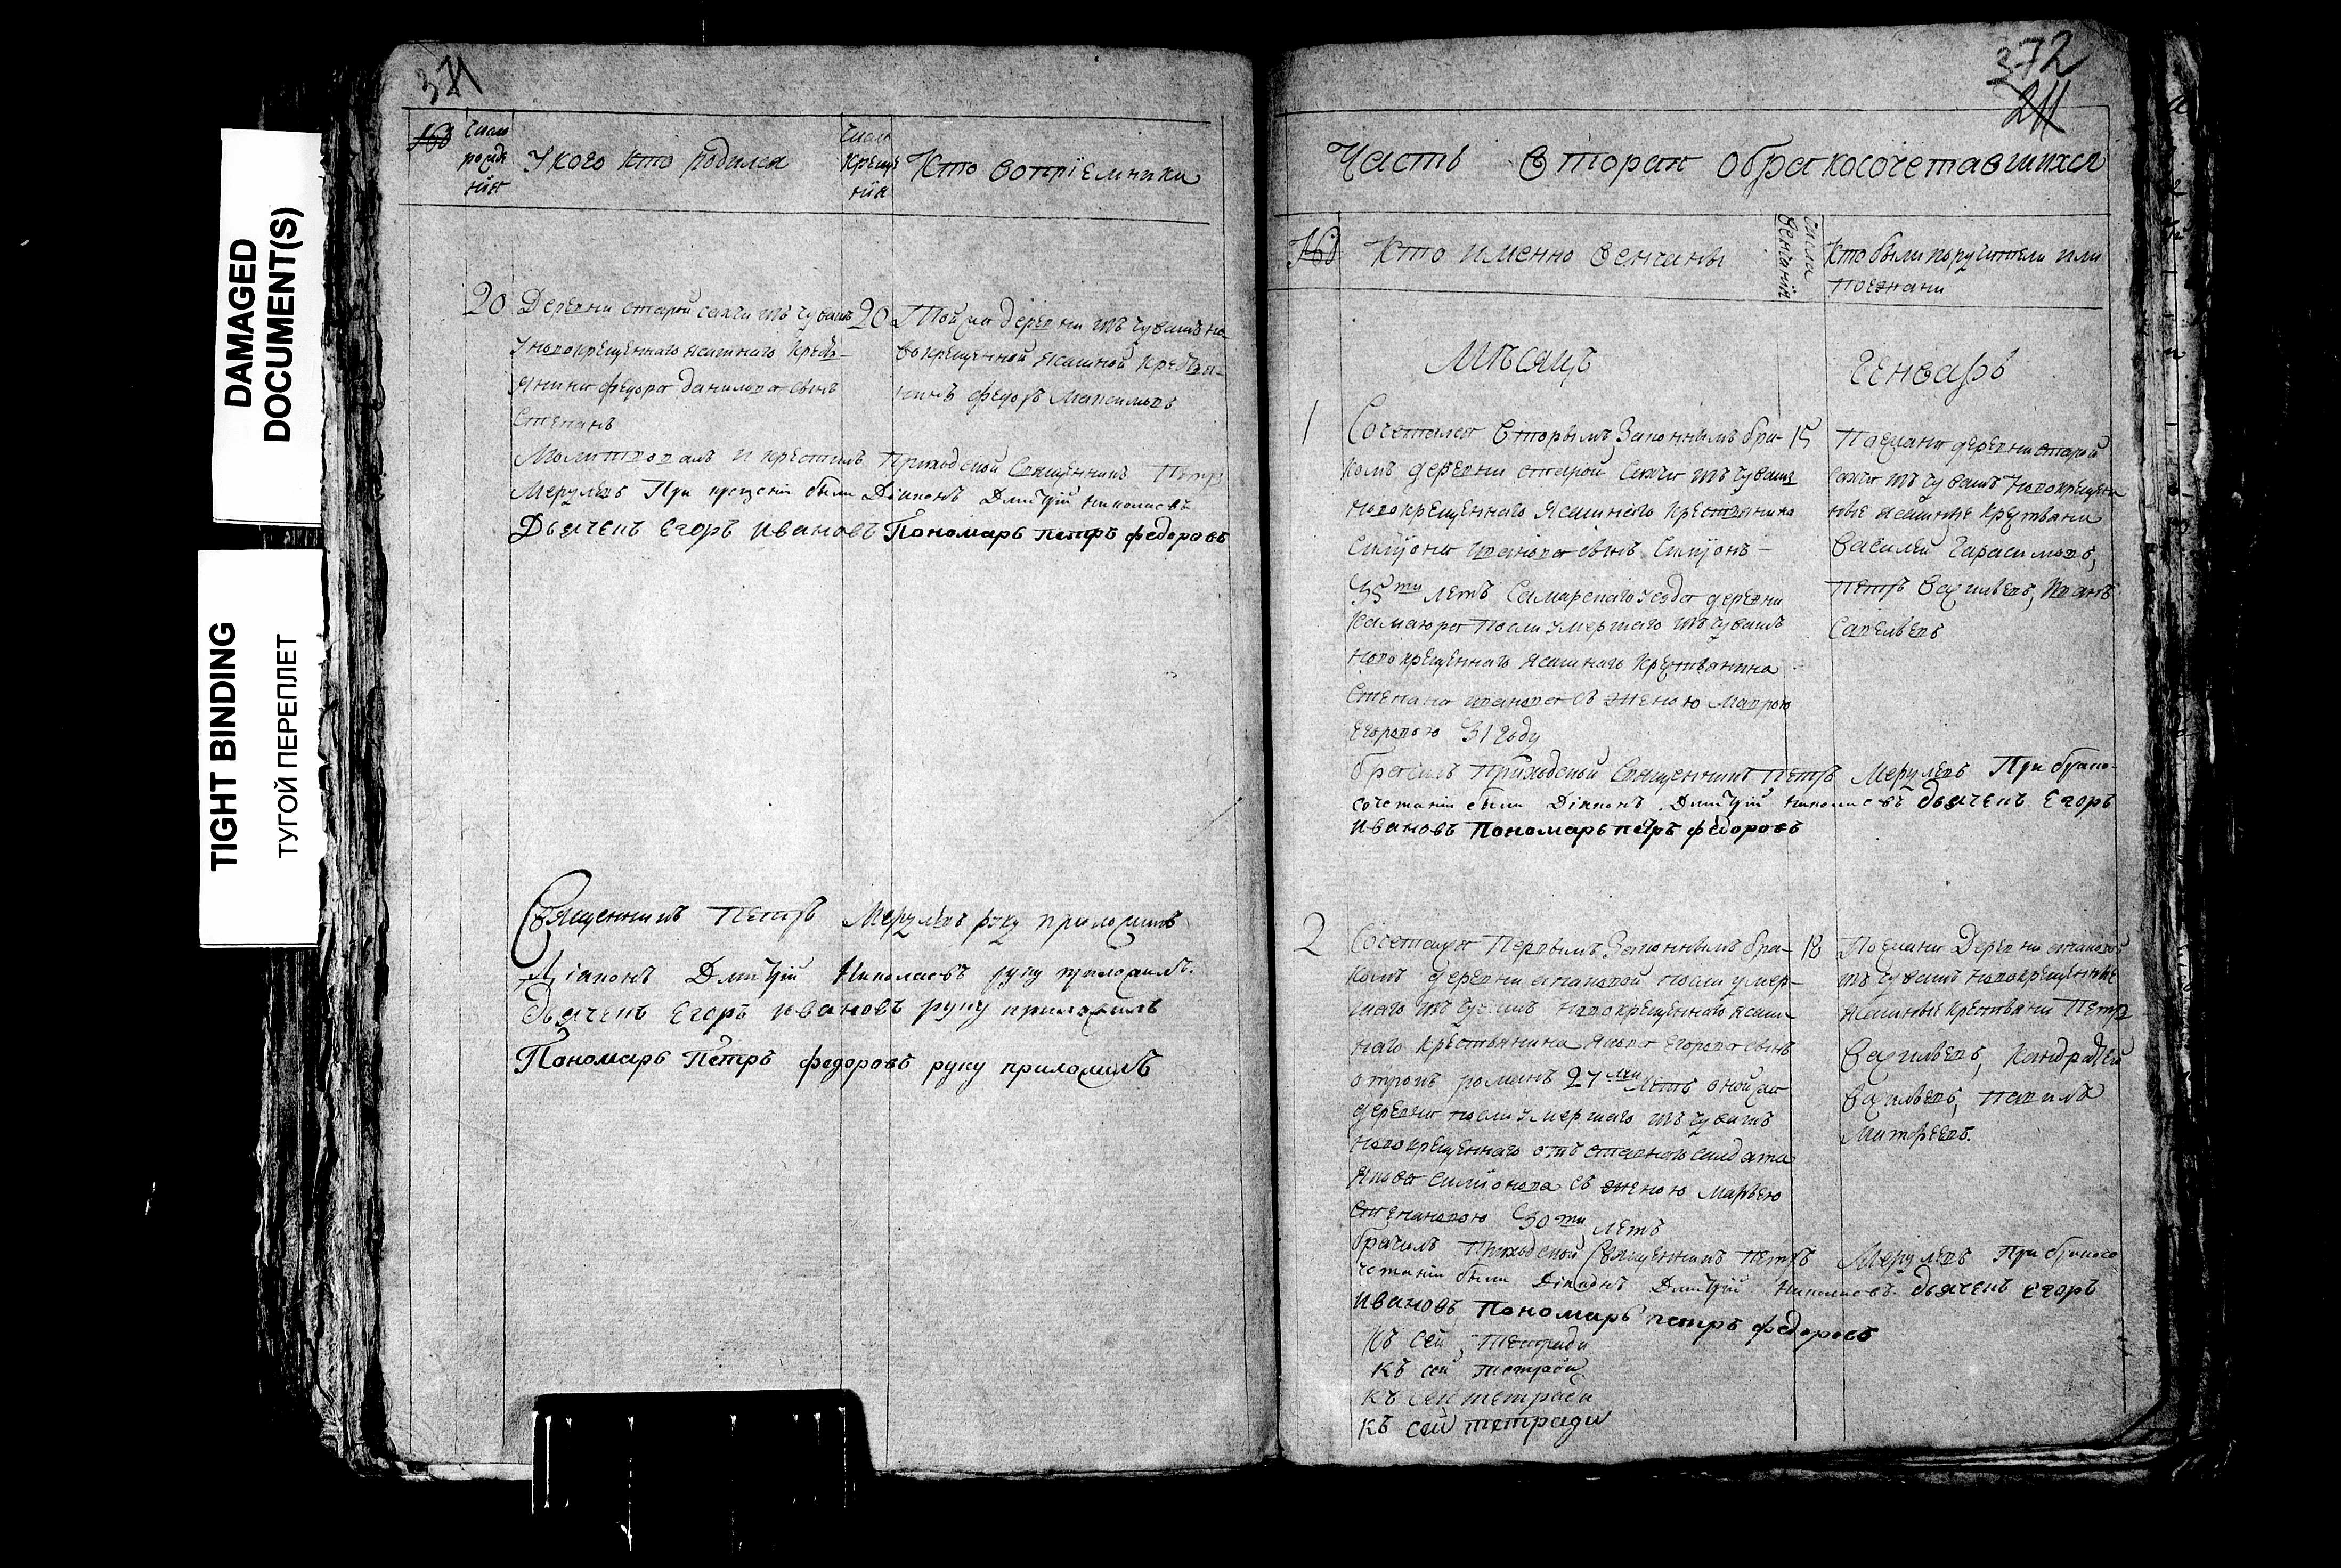 DAMAGED
DOCUMENT(S)
TIGHT BINDING
ТУГОЙ ПЕРЕПЛЕТ
371
№ Числа рождения
У кого кто родился
Числа крещения
Кто восприемники
20 Деревни старой из чувашъ
у новокрещеннаго ясашнаго кресть-
янина Федора Данилова сынъ
Степанъ
20 Той жа деревни изъ чувашъ но-
вокрещенной ясашной крестья-
нинъ Федоръ Максимовъ
Молитвовалъ и крестилъ приходской священникъ Петръ
При крещении были Діаконъ Дмитрій Николаевъ
Дьячекъ Егоръ Ивановъ Пономарь Петръ Федоровъ
Священникъ Петръ руку приложилъ
Діаконъ Дмитрій Николаевъ руку приложилъ.
Дьячекъ Егоръ Ивановъ руку приложилъ
Пономарь Петръ Федоровъ руку приложилъ
372
211
Часть вторая о бракосочетавшихся
№ Кто именно венчаны
Числа венчания
Кто были поручители или
поезжани
Мѣсяцъ Генварь
1 Сочетался вторымъ законнымъ бра-
комъ деревни старой изъ чувашъ
новокрещеннаго ясашнаго крестьянина
Симиона Иванова сынъ Симионъ
35ти летъ Самарскаго уезда деревни
после умершаго изъ чувашъ
новокрещеннаго ясашнаго крестьянина
Степана Иванова съ женою Маврою
Егоровою 31 году
15 Поезжана деревни старой
изъ чувашъ новокрещен-
ные ясашные крестьяни
Василей Гарасимовъ,
Петръ Васильевъ, Иванъ
Савельевъ
Брачилъ приходской священникъ Петръ При брако-
сочетании были Діаконъ Дмитрій Николаевъ Дьячекъ Егоръ
Ивановъ Пономарь Петръ Федоровъ
2 Сочетался первымъ законнымъ бра-
комъ деревни после умер-
шаго изъ чувашъ новокрещеннаго ясаш-
наго крестьянина Якова Егорова сынъ
отрокъ Романъ 27ми летъ оной жа
деревни после умершаго изъ чувашъ
новокрещеннаго отъставнаго салдата
Якова Симионова съ женою Марьею
Степановою 30ти летъ
18 Поезжани деревни
изъ чувашъ новокрещенные
ясашные крестьяни Петръ
Васильевъ, Кандратей
Васильевъ, Павилъ
Матфеевъ.
Брачилъ приходской священникъ Петръ При бракосо-
четании были Діаконъ Дмитрій Николаевъ. Дьячекъ Егоръ
Ивановъ Пономарь Петръ Федоровъ
Къ сей тетради
Къ сей тетради
Къ сей тетради
Къ сей тетради